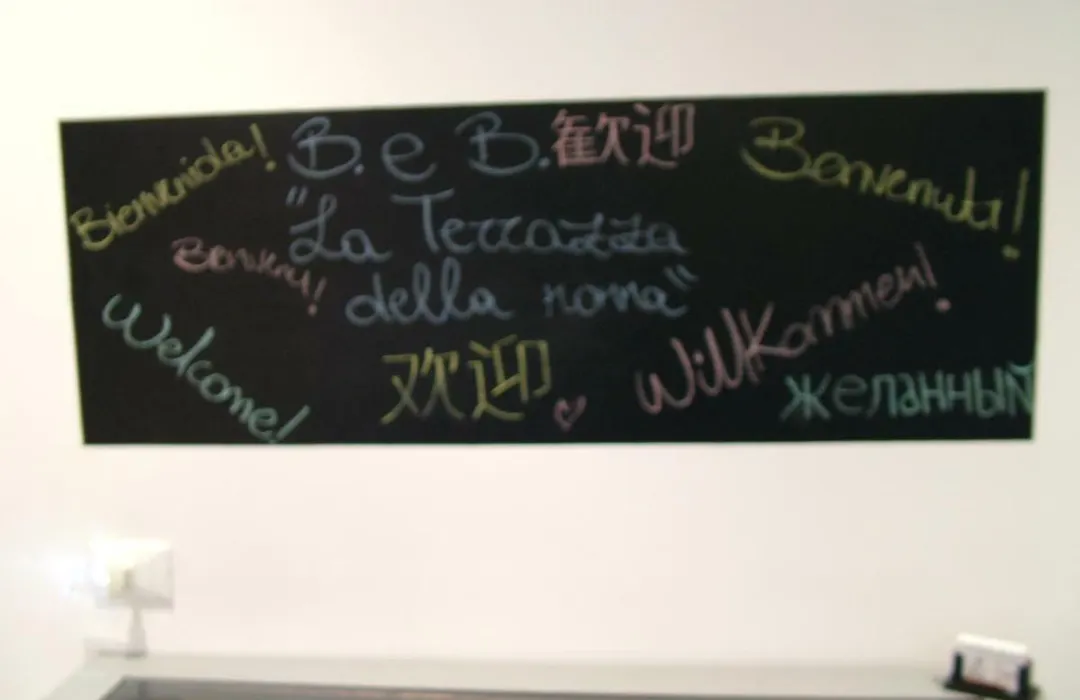 Bienvenida!
B. e B. 歡迎
Benvenuti!
"La Terrazza
della nonna"
Welcome!
欢迎
Willkommen!
желанный